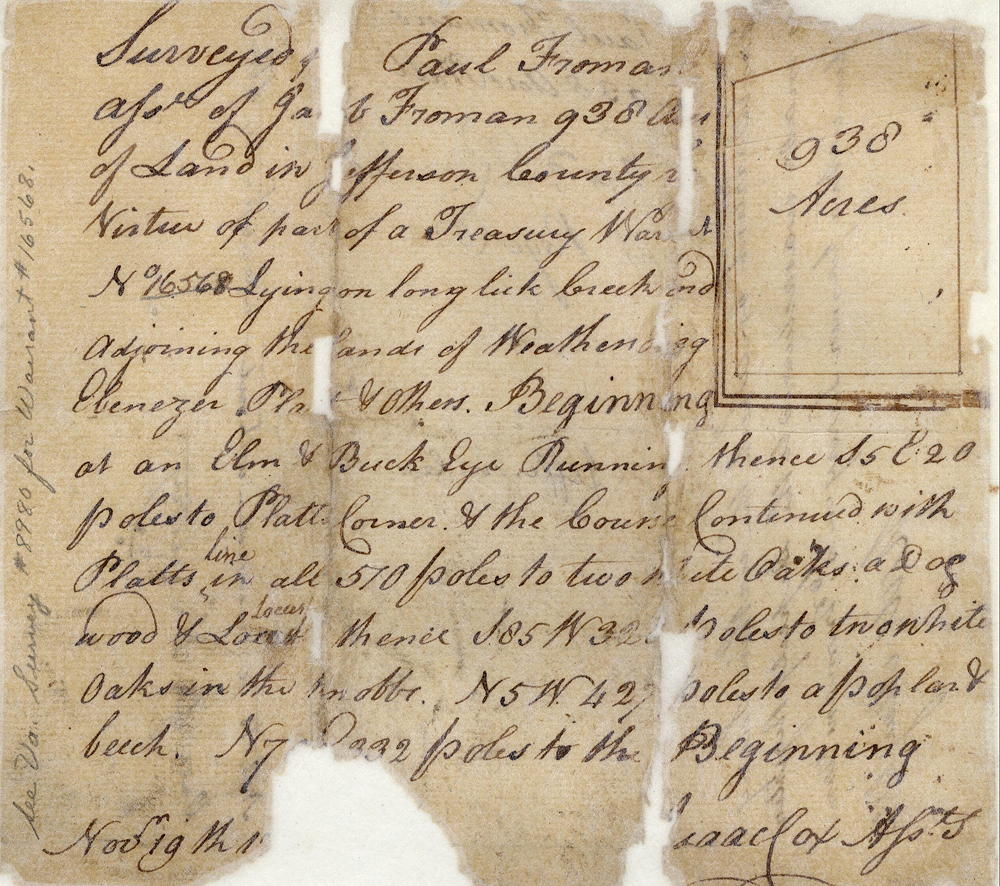 Surveyed Paul Froman
Asse of Ja b Froman 938 Acr
of Land in Jefferson County
Virtue of part of a Treasury Warr t
No 16568 Lying on long lick Creek and
Adjoining the Lands of Weathen ing
Ebenezer Pla & Others. Beginning
at an Elm & Buck Eye Running thence S5E 20
poles to Platts Corner. & the Course Continued with
Platts line in all 510 poles to two white Oaks. a Dog
wood & Locust Locust thence S85W 32 poles to two white
Oaks in the knobbs. N5W. 427 poles to a poplar &
beech. N7 332 poles to the Beginning
Novr 19th 1
Isaac Cox Asst S
938
Acres.
See Va. Survey #8980 for Warrant #16568.